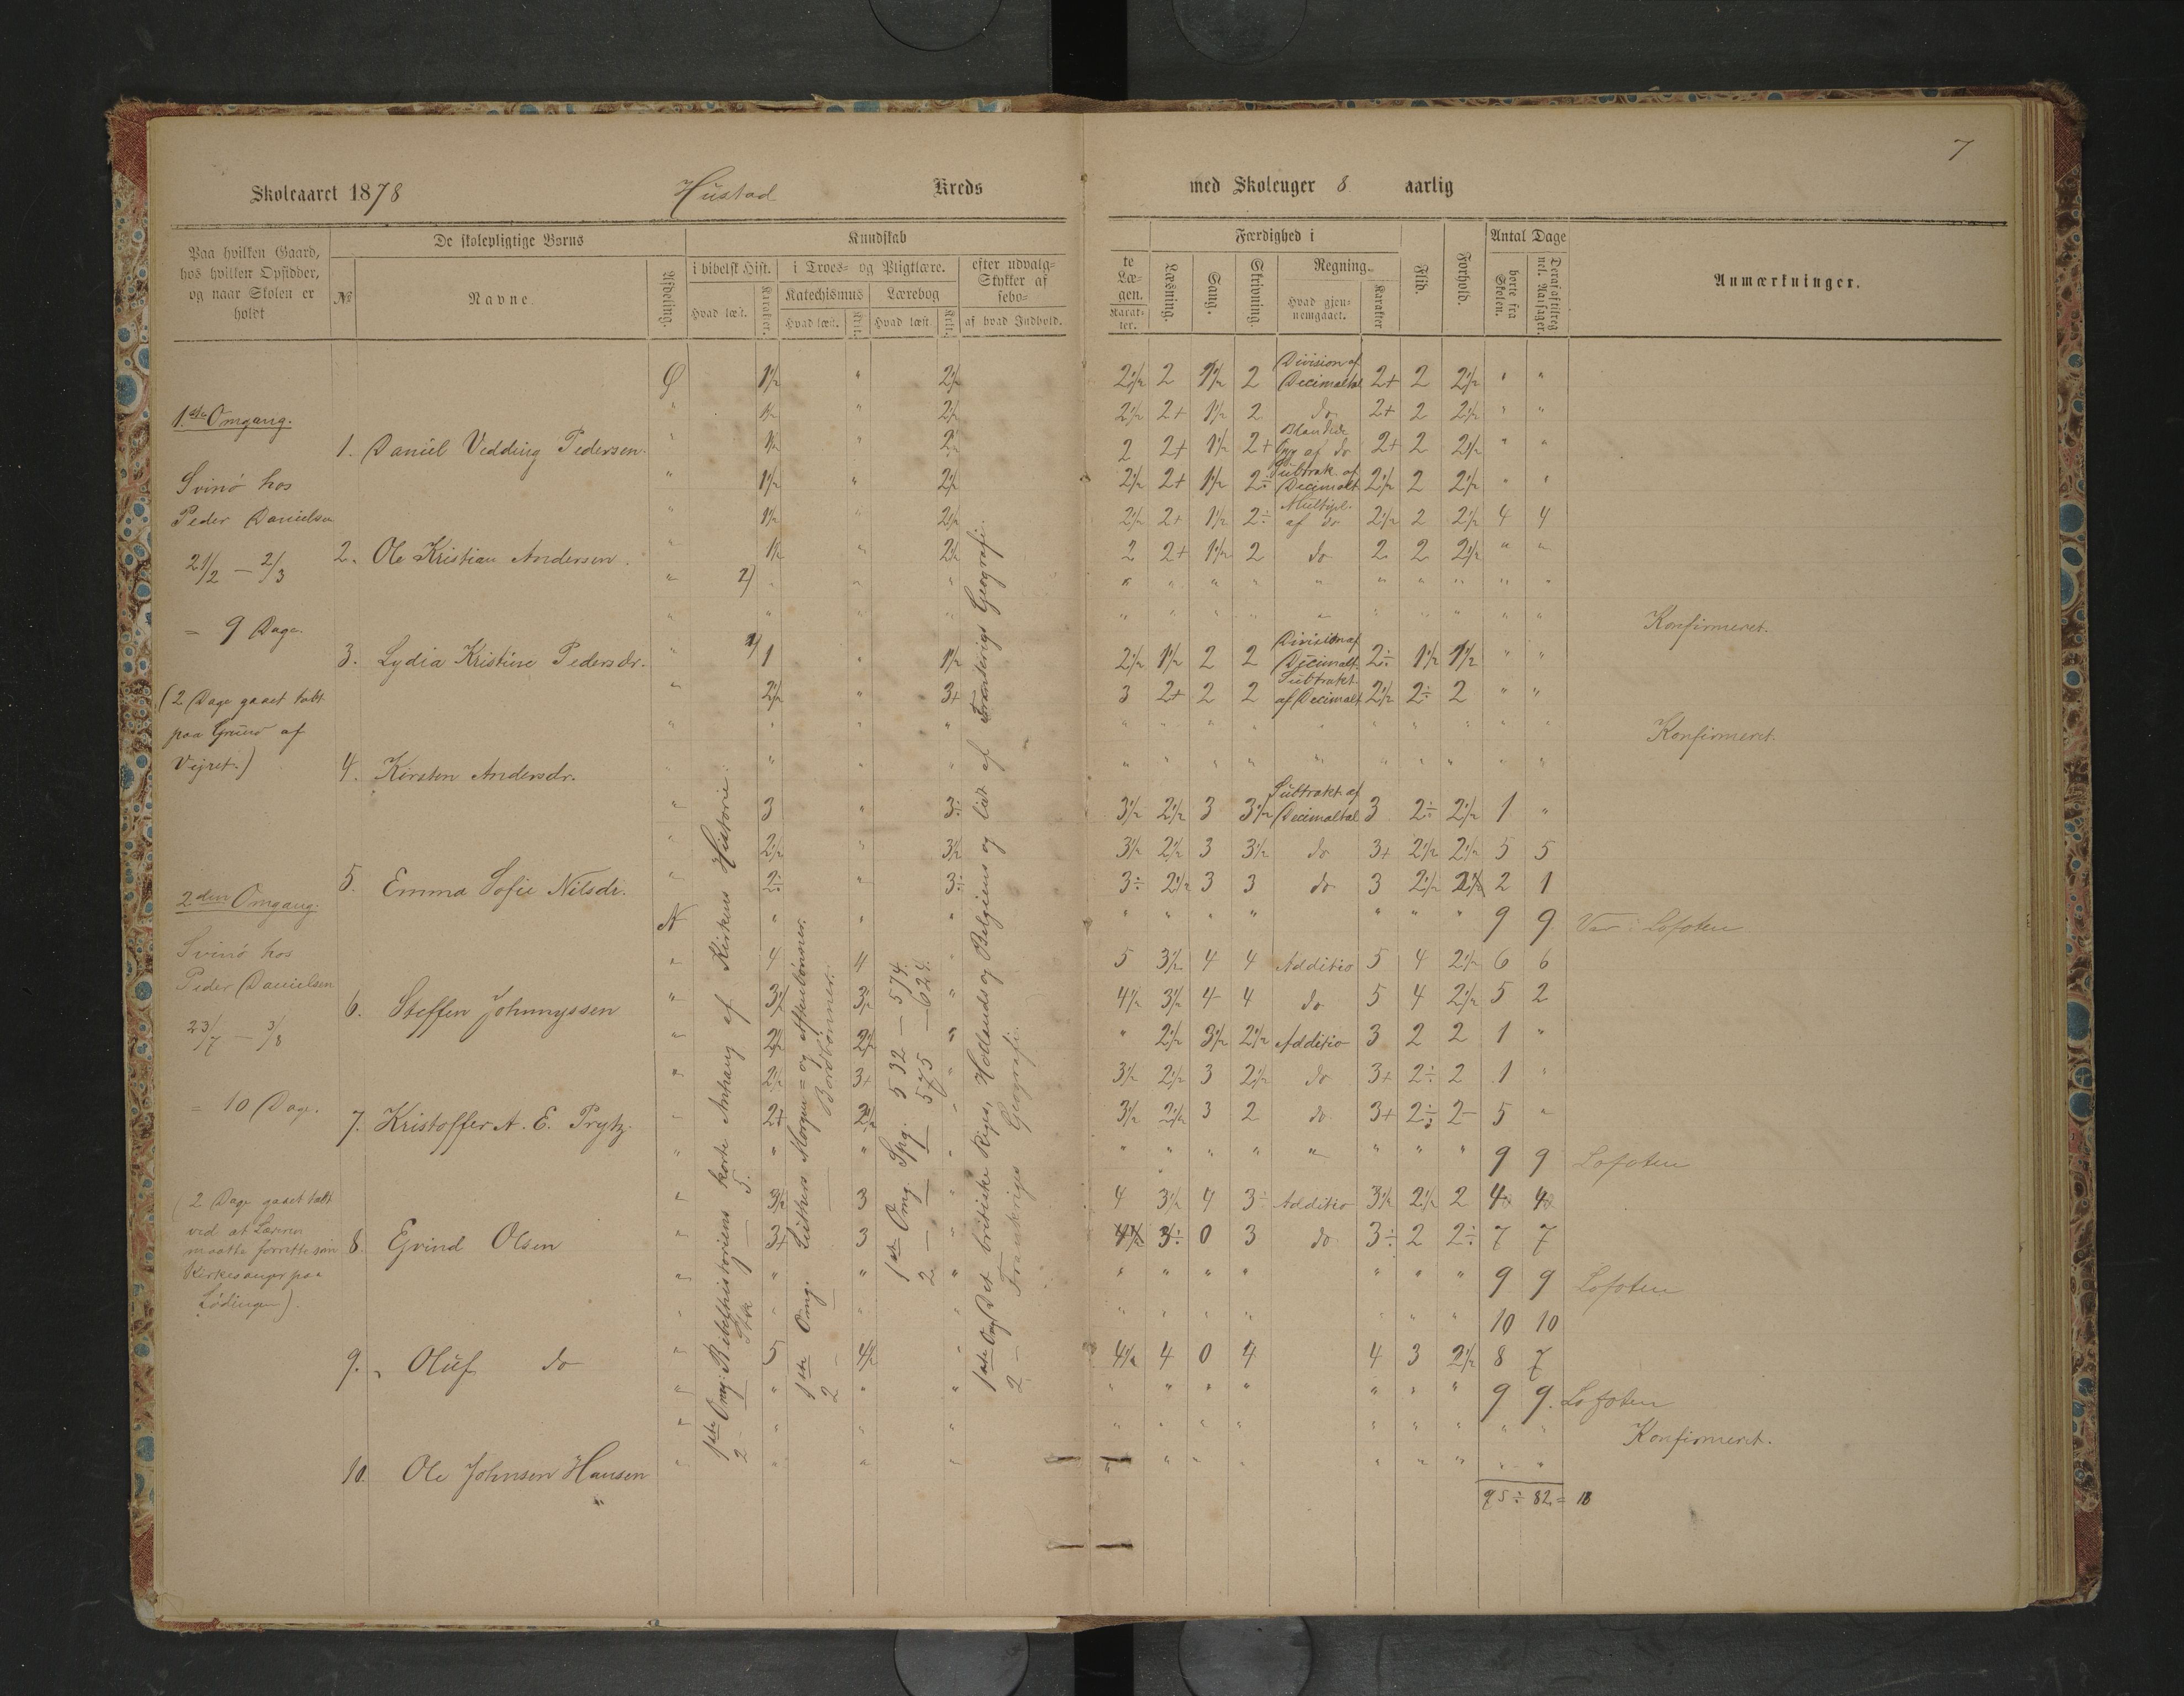 7
Skoleaaret 1878 Hustad Kreds med Skoleuger 8 aarlig
Paa hvilken Gaard, hos hvilken Opsidder, og naar Skolen er holdt
De skolepligtige Børns
№
Navne
Afdeling.
Kundskab
i bibelsk Hist.
Hvad læst.
Karakter.
i Troes- og Pligtlære.
Katechismus
Hvad læst.
Krkt.
Lærebog
Hvad læst
Krkt.
efter udvalg-
Stykker af
sebo-
af hvad Indhold.
te
Læ-
gen.
Karak-
ter.
Færdighed i
Læsning.
Sang.
Skrivning.
Regning.
Hvad gjen-
nemgaaet.
Karakter
Flid.
Forhold.
Antal Dage
borte fra
Skolen.
Anmærkninger.
1ste Omgang.
Svinö hos
Peder Danielsen
21/2 — 2/3
= 9 Dage.
(2 Dage gaaet tabt
paa Grund af
Vejret.)
2den Omgang.
Svinö hos
Peder Danielsen
23/7 — 3/8
= 10 Dage.
(2 Dage gaaet tabt
ved at Læreren
maatte forrette som
Kirkesanger paa
Lödingen).
1. Daniel Vedding Pedersen.
2. Ole Kristian Andersen.
3. Lydia Kristine Pedersdr.
4. Kirsten Andersdr.
5. Emma Sofie Nilsdr.
6. Steffen Johnnyssen
7. Kristoffer A. E. Prytz.
8. Ejvind Olsen
9. Oluf do
10. Ole Johnsen Hansen
1ste Omg: Bibelhistoriens korte Anhang af Kirkens Historie.
2 — Stk 5.
1ste Omg. Luthers Morgen= og Aftenbönner.
2 — — Bordbönner.
1ste Omg. Spg. 532 — 574.
2 — — 575 — 624.
1ste Omg Det britiske Rige, Hollands og Belgiens og lidt af Frankrigs Geografi.
2 — Frankriges Geografi.
2½ 2 1½ 2 Division af Decimaltal 2+ 2 2½ " "
2½ 2+ 1½ 2 do 2+ 2 2½ " "
2 2+ 1½ 2+ af do 2+ 2 2½ " "
2½ 2+ 1½ 2÷ Subtrak. af Decimalt 2½ 2 2½ " "
2½ 2+ 1½ 2÷ Multipl. af do 2½ 2 2½ 4 4
2 2+ 1½ 2 do 2 2 2½ " "
Konfirmeret.
2½ 1½ 2 2 Division af Decimalt. 2÷ 1½ 1½ " "
3 2+ 2 2 Subtrakt. af Decimalt 2½ 2÷ 2 " "
Konfirmeret.
3½ 2½ 3 3½ Subtrakt. af Decimaltal 3 2÷ 2½ 1 "
3½ 2½ 3 3½ do 3+ 2½ 2½ 5 5
3÷ 2½ 3 3 do 3 2½ 2½ 2 1
9 9 Var i Lofoten
5 3½ 4 4 Additio 5 4 2½ 6 6
4½ 3½ 4 4 do 5 4 2½ 5 2
" 2½ 3½ 2½ Additio 3 2 2 1 "
3½ 2½ 3 2½ do 3+ 2÷ 2 1 "
3½ 2½ 3 2 do 3+ 2÷ 2- 5 "
9 9 Lofoten
4 3½ 4 3÷ Additio 3½ 2½ 2 4 4
4½ 3÷ 0 3 do 3÷ 2 2÷ 7 7
9 9 Lofoten
10 10
4½ 4 0 4 4 3 2½ 8 7
9 9. Lofoten
Konfirmeret.
95 ÷ 82 = 13